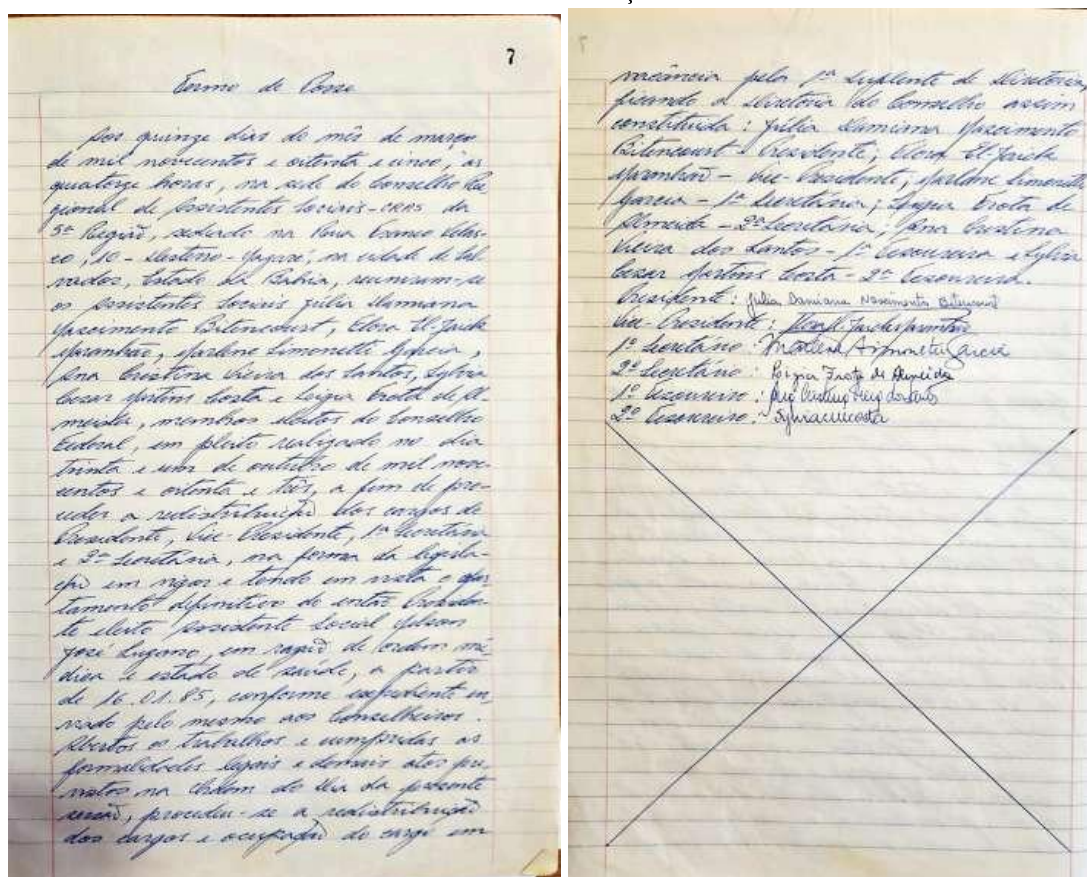 7
Termo de Posse
Aos quinze dias do mês de março
de mil novecentos e oitenta e cinco, às
quatorze horas, na sede do Conselho Re
gional de Assistentes Sociais-CRAS da
5ª Região, sediado na Rua
10 - Nazaré, na cidade de Sal
vador, Estado da Bahia, reuniram-se
os Assistentes Sociais Júlia Damiana
Nascimento Bitencourt, Clora El-Jaick
Maranhão, Marlene Simonetti Garcia,
Ana Cristina Vieira dos Santos, Sylvia
Cesar Martins Costa e Lígia Trota de Al
meida, membros eleitos do Conselho
Federal, em pleito realizado no dia
trinta e um de outubro de mil nove
centos e oitenta e três, a fim de pro-
ceder a redistribuição dos cargos de
Presidente, Vice-Presidente, 1ª Secretária
e 2ª Secretária, na forma da legisla-
ção em vigor e tendo em vista o afas
tamento definitivo do então Presiden-
te eleito Assistente Social
José Lugano, em razão de ordem mé
dica e estado de saúde, a partir
de 16.01.85, conforme expediente en
viado pelo mesmo aos Conselheiros.
Abertos os trabalhos e cumpridas as
formalidades legais e demais atos pre
vistos na Ordem do Dia da presente
sessão, procedeu-se a redistribuição
dos cargos e ocupação do cargo em
vacância pela 1ª Suplente de Diretoria,
ficando a Diretoria do Conselho assim
constituída: Júlia Damiana Nascimento
Bitencourt - Presidente, Clora El-Jaick
Maranhão - Vice-Presidente; Marlene Simonetti
Garcia - 1ª Secretária; Lígia Trota de
Almeida - 2ª Secretária; Ana Cristina
Vieira dos Santos - 1ª Tesoureira e Sylvia
Cesar Martins Costa - 2ª Tesoureira.
Presidente: Júlia Damiana Nascimento Bitencourt
Vice-Presidente: Maranhão
1º Secretário: Marlene Simonetti Garcia
2º Secretário: Lígia Trota de Almeida
1º Tesoureiro:
2º Tesoureiro: